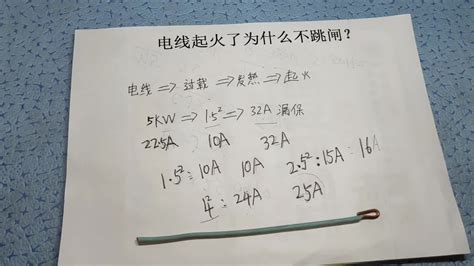 电线起火了为什么不跳闸?
电线 ⇒ 过载 ⇒ 发热 ⇒ 起火
5KW ⇒ 1.5² ⇒ 32A 漏保
22.5A 10A 32A
1.5²: 10A 10A 2.5²: 15A: 16A
4²: 24A 25A